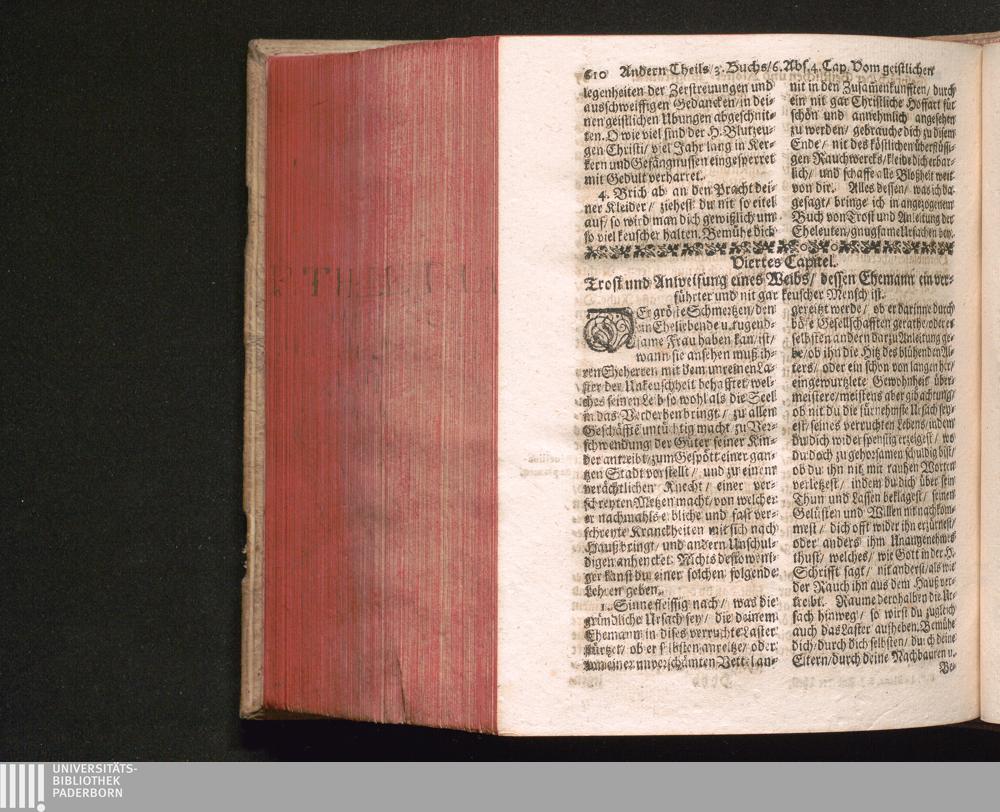 610 Andern Theils/3. Buchs/6. Abs. 4. Cap. Vom geistlichen
legenheiten der Zerstreuungen und
ausschweiffigen Gedancken/in dei-
nen geistlichen Ubungen abgeschnit-
ten. O wie viel sind der H. Blutzeu-
gen Christi/ viel Jahr lang in Ker-
kern und Gefängnussen eingesperret
mit Gedult verharret.
4. Brich ab an den Pracht dei-
ner Kleider/ ziehest du nit so eitel
auf/ so wird man dich gewißlich um
so viel keuscher halten. Bemühe dich
nit in den Zusamenkunfften/ durch
ein nit gar Christliche Hoffart für
schön und annehmlich angesehen
zu werden/ gebrauche dich zu disem
Ende/ nit des köstlichen überflüssi-
gen Rauchwercks/kleide dich erbar-
lich/ und schaffe alle Bloßheit weit
von dir. Alles dessen/ was ich da-
gesagt/ bringe ich in angezogenem
Buch von Trost und Anleitung der
Eheleuten/gnugsame Ursachen bey.
Viertes Capitel.
Trost und Anweisung eines Weibs/ dessen Ehemann ein ver-
führter und nit gar keuscher Mensch ist.
DEr gröste Schmertzen/den
ein Ehelibende u. tugend-
same Frau haben kan/ist/
wann sie ansehen muß ih-
ren Eheherren mit dem unreinen La-
ster der Unkeuschheit behafftet/wel-
ches seinen Leib so wohl als die Seel
in das Verderben bringt/ zu allen
Geschäffte untüchtig macht/ zu Ver-
schwendung der Güter seiner Kin-
der antreibt/zum Gespött einer gan-
tzen Stadt vorstellt/ und zu einem
verächtlichen Knecht/ einer ver-
schreyten Metzen macht/von welcher
er nachmahls e bliche und fast ver-
schreyte Kranckheiten mit sich nach
Hauß bringt/ und andern Unschul-
digen anhencket. Nichts destoweni-
ger kanst du einer solchen folgende
Lehren geben.
1. Sinne fleissig nach/ was die
gründliche Ursach sey/ die deinem
Ehemann in dises verruchte Laster
stürtzet/ ob er s lbsten anreitze/ oder
von einer unverschämten Vettl an-
gereitzt werde/ ob er darinne durch
böse Gesellschafften gerathe/oder es
selbsten andern darzu Anleitung ge-
be/ob ihn die Hitz des blühenden Al-
ters/ oder ein schon von langen her/
eingewurtzlete Gewohnheit über-
meistere/meistens aber gib achtung/
ob nit du die fürnehmste Ursach sey-
est/seines verruchten Lebens/indem
du dich widerspenstig erzeigest/ wo
du doch zu gehorsamen schuldig bist/
ob du ihn nit mit rauhen Worten
verletzest/ indem du dich über sein
Thun und Lassen beklagest/ seinen
Gelüsten und Willen nit nachkom-
mest/ dich offt wider ihn erzürnest/
oder anders ihm Unangenehmes
thust/ welches/ wie Gott in der H.
Schrifft sagt/ nit anderst/als wie
der Rauch ihn aus dem Hauß ver-
treibt. Raume derohalben die Ur-
sach hinweg/ so wirst du zugleich
auch das Laster aufheben. Bemühe
dich/durch dich selbsten/ durch deine
Eltern/durch deine Nachbauren u.
Be-
UNIVERSITÄTS-
BIBLIOTHEK
PADERBORN